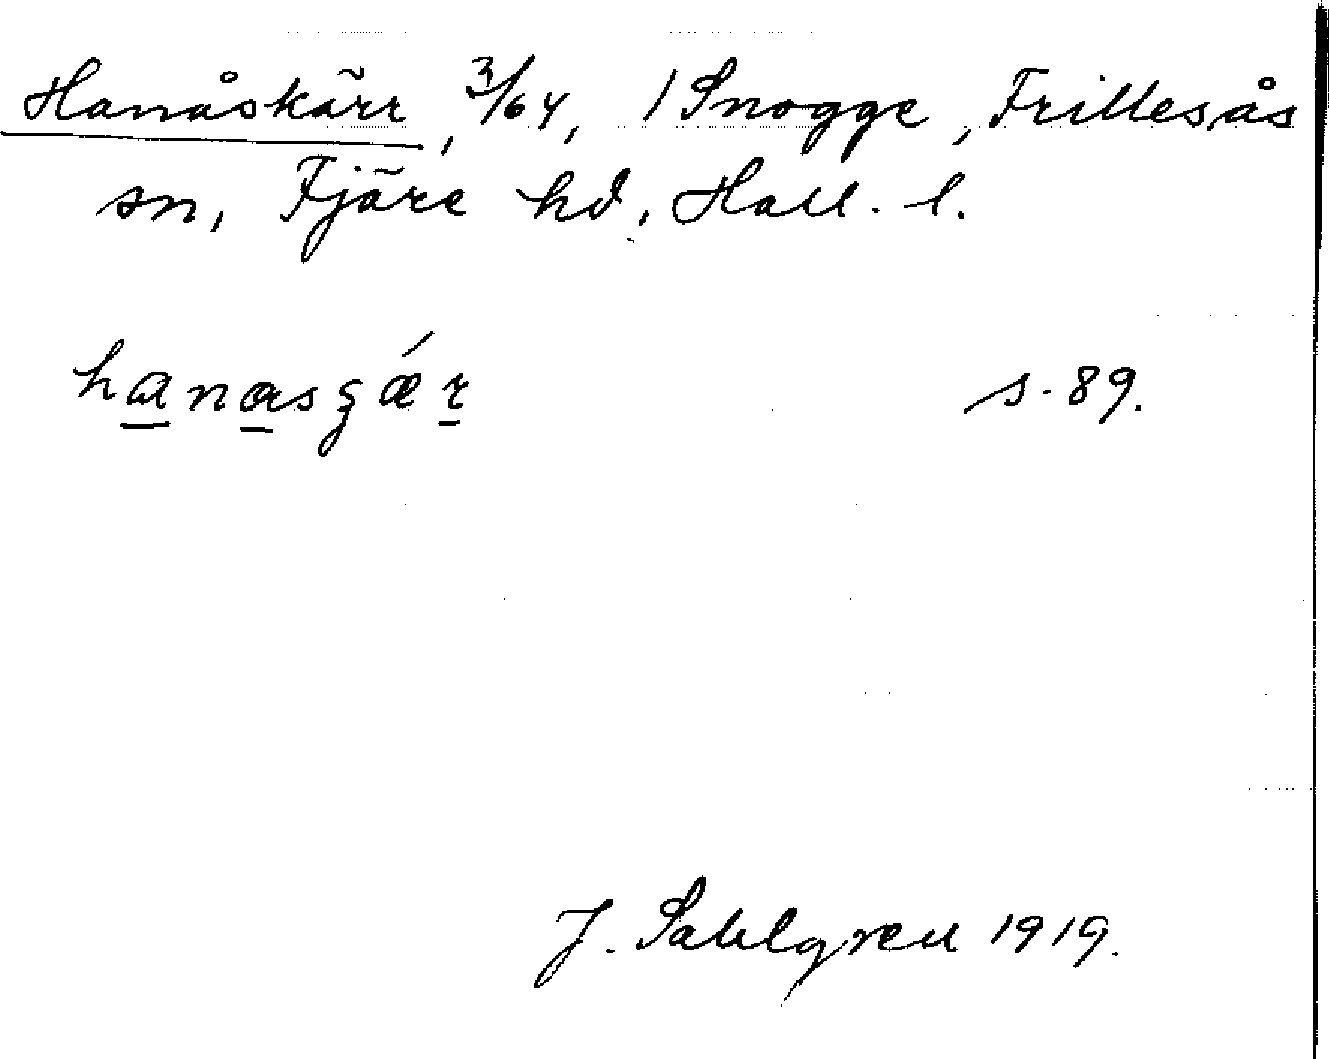 Hanåskärr, 3/64, 1 Snogge, Frillesås
sn, Fjäre hd, Hall. l.
hanasʒǽr s. 89.
J. Sahlgren 1919.